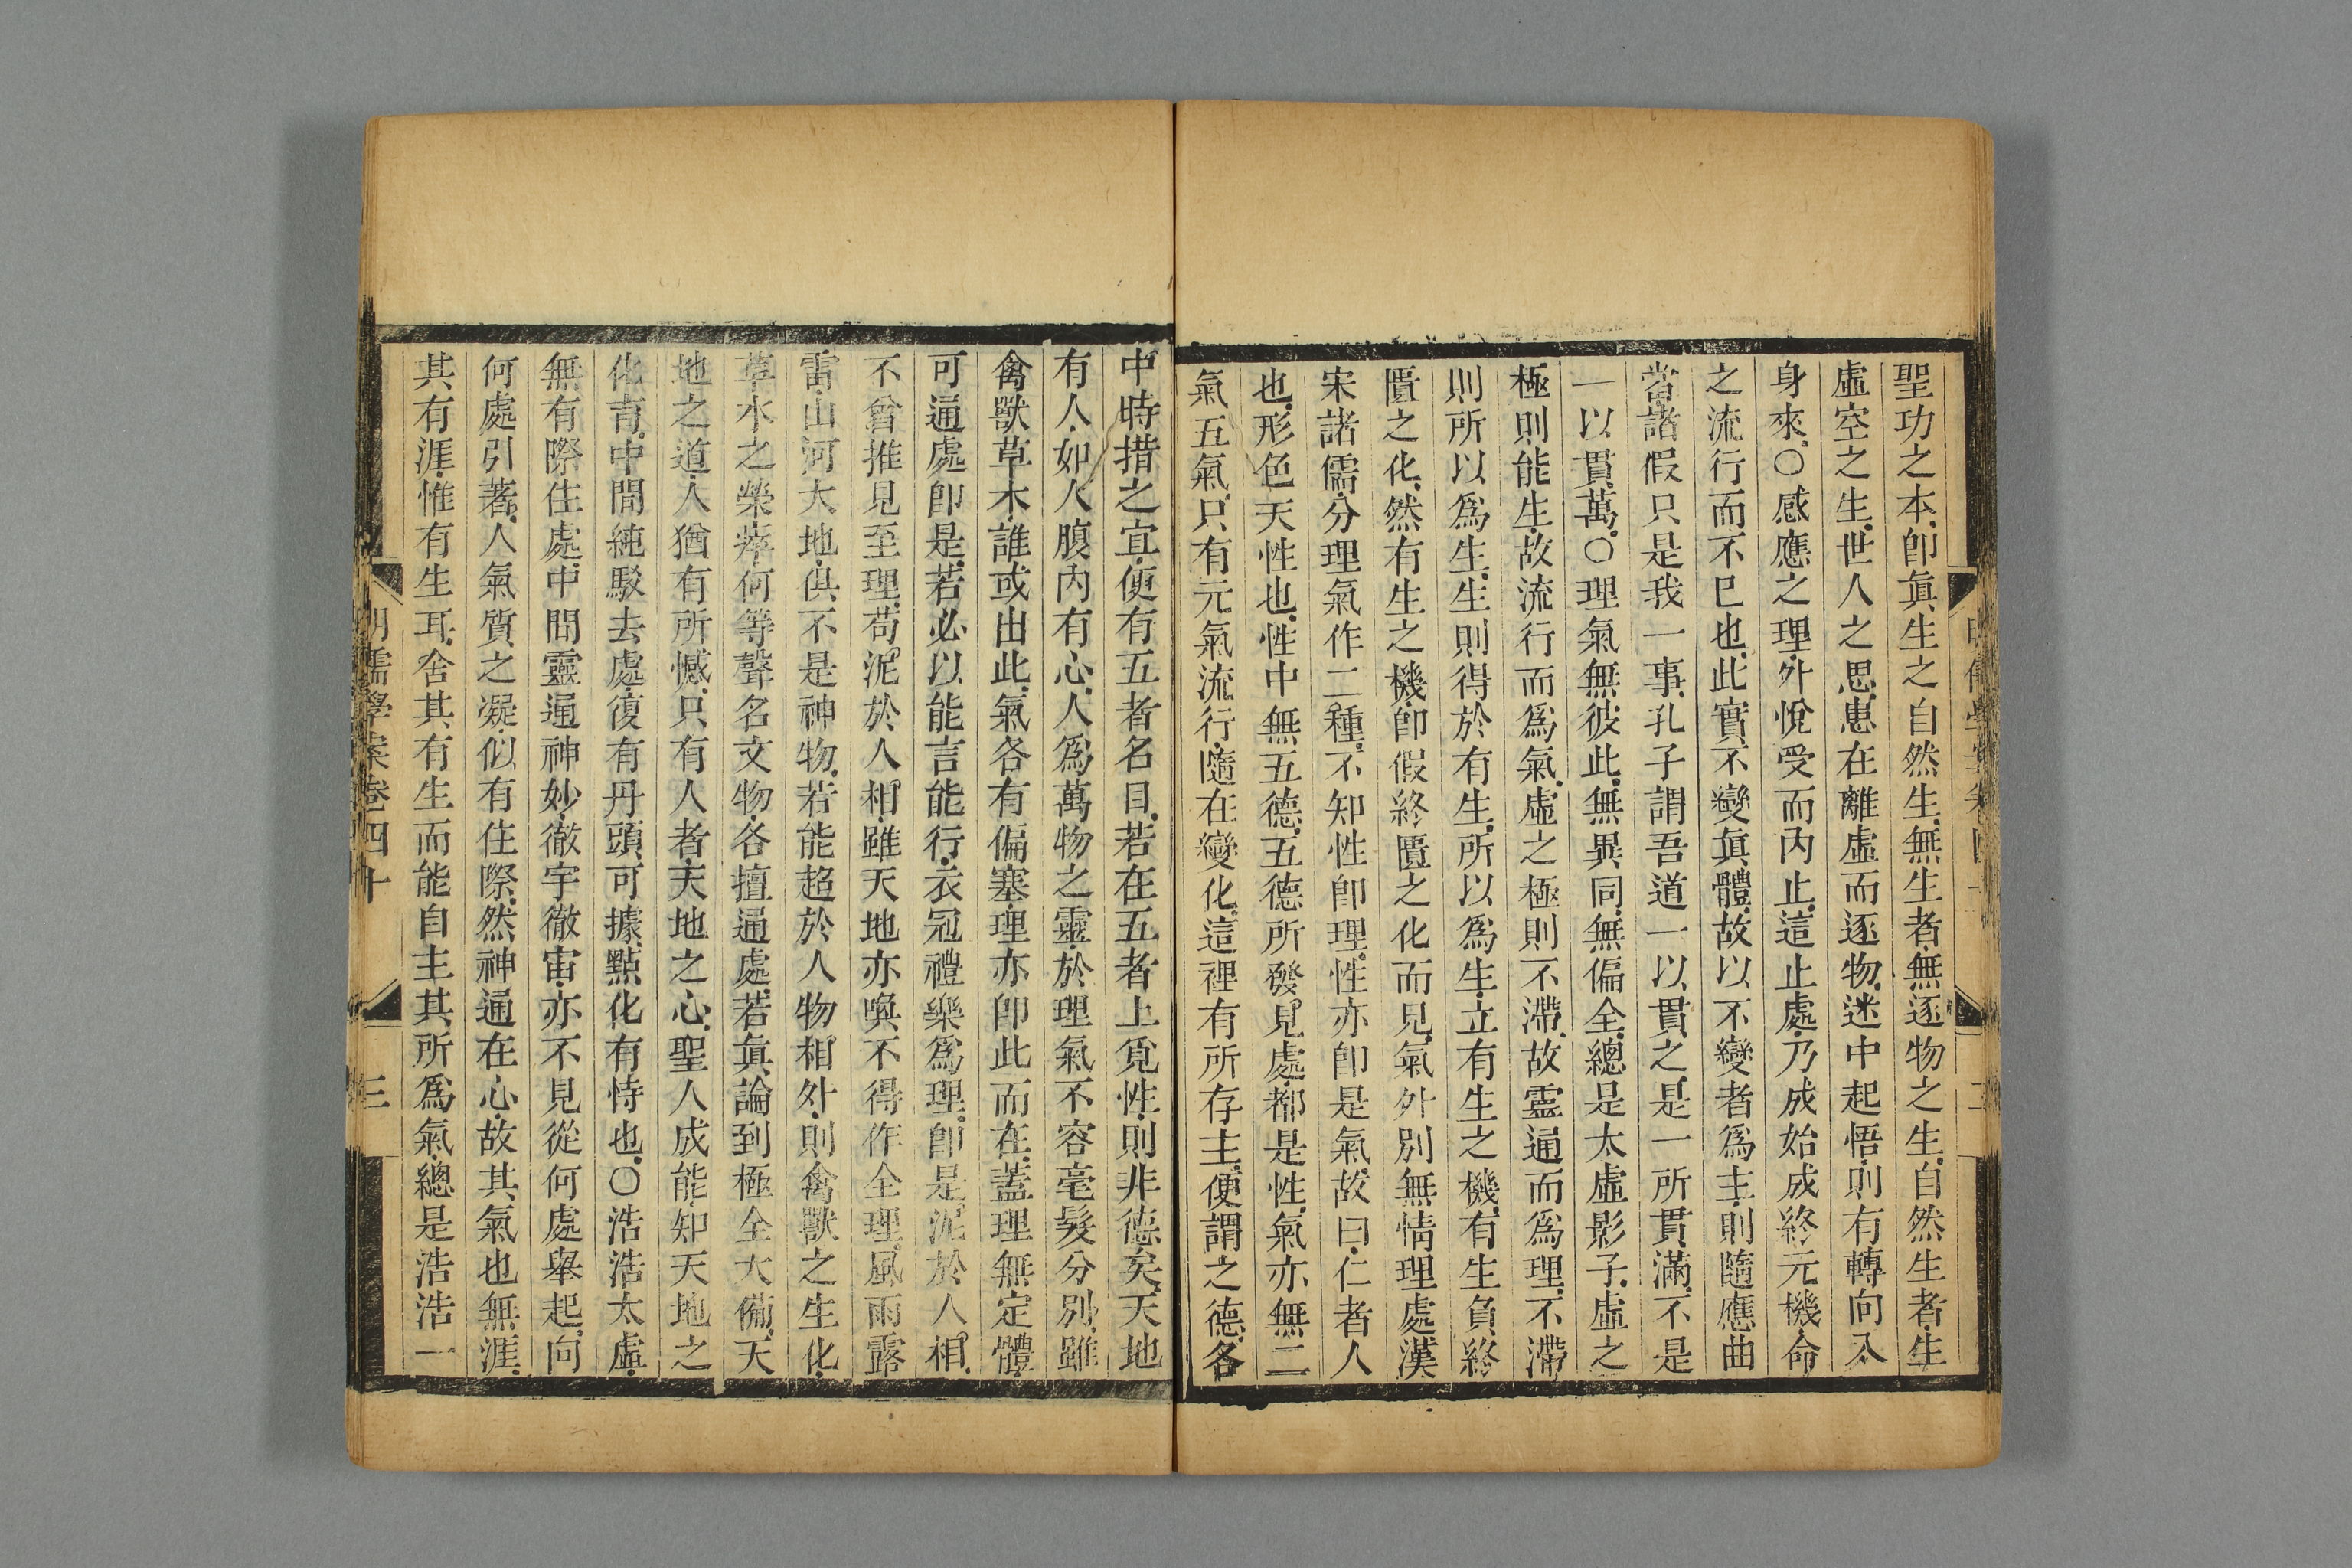 聖功之本、卽眞生之自然生、無生者、無逐物之生、自然生者、生
虛空之生、世人之思、患在離虛而逐物、迷中起悟、則有轉向入
身來。○感應之理、外悅受而內止、這止處、乃成始成終元機、命
之流行而不已也、此實不變眞體、故以不變者爲主、則隨應曲
當、諸假只是我一事、孔子謂吾道一以貫之、是一所貫滿、不是
一以貫萬。○理氣無彼此、無異同、無偏全、總是太虛影子、虛之
極則能生、故流行而爲氣、虛之極則不滯、故靈通而爲理、不滯
則所以爲生、生則得於有生、所以爲生、立有生之機、有生負終
匱之化、然有生之機、卽假終匱之化而見、氣外別無情理處、漢
宋諸儒、分理氣作二種、不知性卽理、性亦卽是氣、故曰、仁者人
也、形色天性也、性中無五德、五德所發見處、都是性、氣亦無二
氣五氣、只有元氣流行、隨在變化、這裡有所存主、便謂之德、各
中時措之宜、便有五者名目、若在五者上覓性、則非德矣、天地
有人、如人腹內有心、人爲萬物之靈、於理氣不容毫髮分別、雖
禽獸草木、誰或出此、氣各有偏塞、理亦卽此而在、蓋理無定體、
可通處卽是、若必以能言能行、衣冠禮樂爲理、卽是泥於人相、
不曾推見至理、苟泥於人相、雖天地亦喚不得作全理、風雨露
雷、山河大地、俱不是神物、若能超於人物相外、則禽獸之生化、
草木之榮瘁、何等聲名文物、各擅通處、若眞論到極全大備、天
地之道、人猶有所憾、只有人者、天地之心、聖人成能、知天地之
化育、中間純駁去處、復有丹頭可據、點化有恃也。○浩浩太虛、
無有際住處、中間靈通神妙、徹宇徹宙、亦不見從何處舉起、向
何處引著、人氣質之凝、似有住際、然神通在心、故其氣也無涯、
其有涯、惟有生耳、舍其有生、而能自主其所爲氣、總是浩浩一
明儒學案卷四十 三